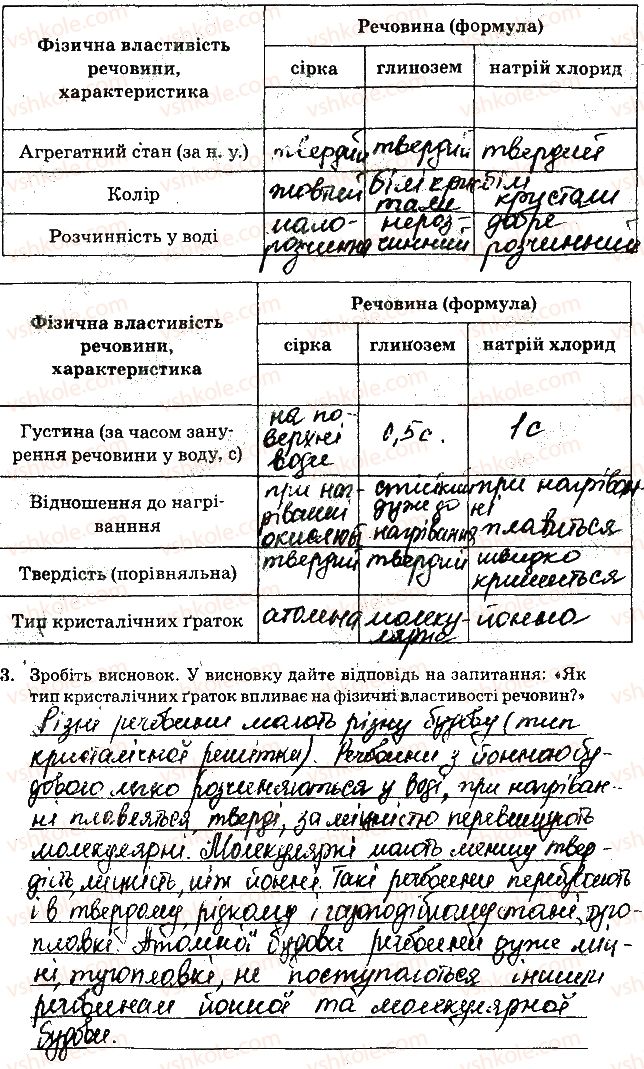 Фізична властивість речовини, характеристика
Речовина (формула)
сірка глинозем натрій хлорид
Агрегатний стан (за н. у.) твердий твердий твердий
Колір жовтий білі кристали білі кристали
Розчинність у воді малорозчинна нерозчинний добре розчинний
Фізична властивість речовини, характеристика
Речовина (формула)
сірка глинозем натрій хлорид
Густина (за часом зану-
рення речовини у воду, с) на поверхні води 0,5с. 1с
Відношення до нагрі-
вання при нагріванні стійкий дуже до нагрівання при нагріванні плавиться
Твердість (порівняльна) твердий твердий швидко кришиться
Тип кристалічних ґраток атомна молекулярна йонна
3. Зробіть висновок. У висновку дайте відповідь на запитання: «Як
тип кристалічних ґраток впливає на фізичні властивості речовин?»
Різні речовини мають різну будову (тип
кристалічної решітки). Речовини з йонною бу-
довою легко розчиняються у воді, при нагріван-
ні плавляться, тверді, за міцністю перевищують
молекулярні. Молекулярні мають меншу твер-
дість, міцність, ніж йонні. Такі речовини перебувають
і в твердому, рідкому і газоподібному стані, туго-
плавкі. Атомної будови речовини дуже міц-
ні, тугоплавкі, не поступаються іншим
речовинам йонної та молекулярної
будови.